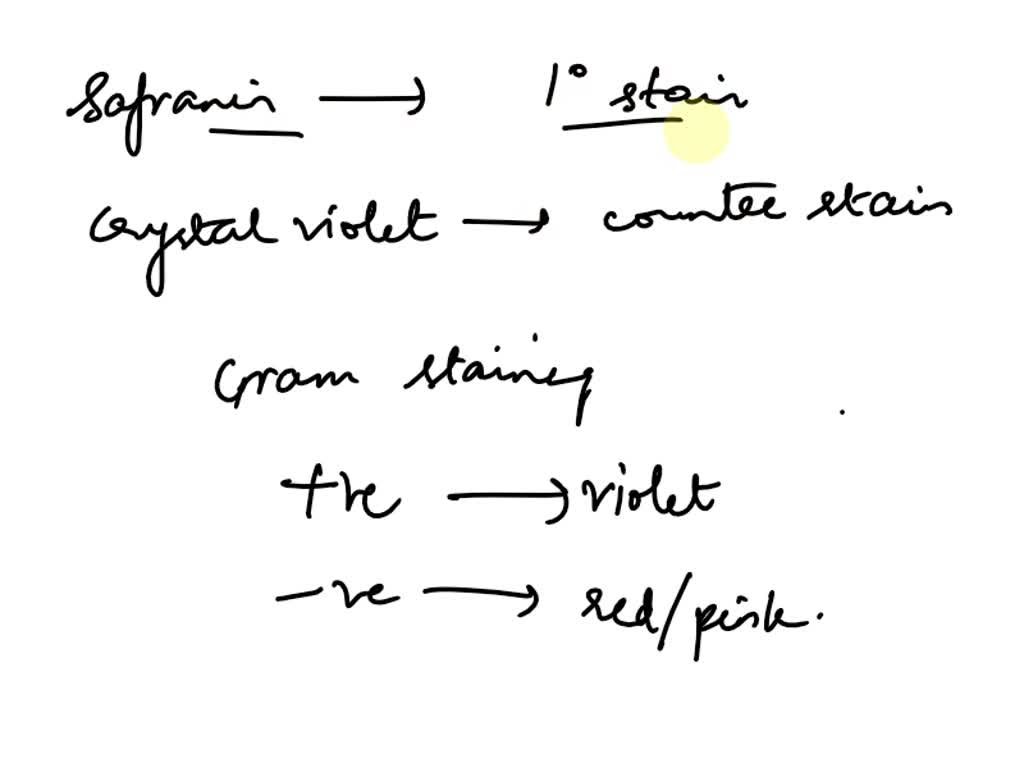 Safranin → 1° stain
Crystal violet → counter stain
Gram staining
+ve → violet
-ve → red/pink.